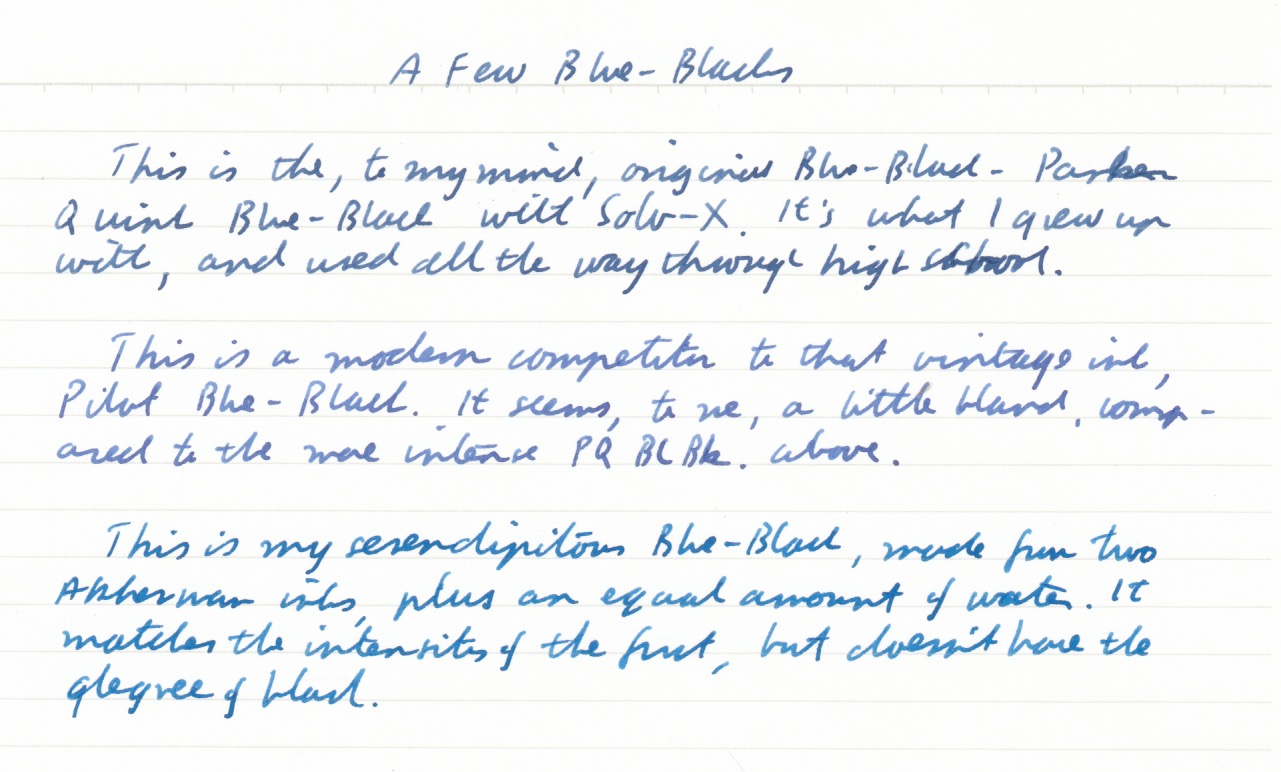 A Few Blue-Blacks
This is the, to my mind, original Blue-Black - Parker
Quink Blue-Black with Solv-X. It's what I grew up
with, and used all the way through high school.
This is a modern competitor to that vintage ink,
Pilot Blue-Black. It seems, to me, a little bland, comp-
ared to the more intense PQ BLBk. above.
This is my serendipitous Blue-Black, made from two
Akkerman inks, plus an equal amount of water. It
matches the intensity of the first, but doesn't have the
degree of black.